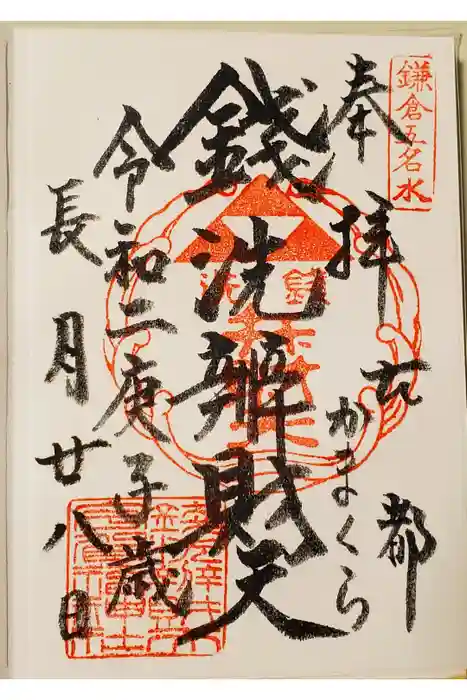 鎌倉五名水
奉拝
古都
かまくら
銭洗辨財天
令和二庚子歳
長月廿八日
銭洗